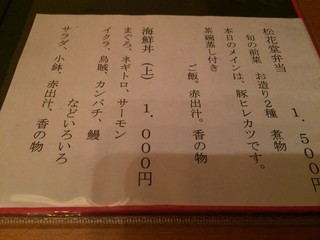 松花堂弁当 1.500円
旬の前菜 お造り2種 煮物
本日のメインは、豚ヒレカツです。
茶碗蒸し付き
ご飯。赤出汁。香の物
海鮮丼（上）1.000円
まぐろ、ネギトロ、サーモン
イクラ、烏賊、カンパチ、鰻
などいろいろ
サラダ、小鉢、赤出汁、香の物